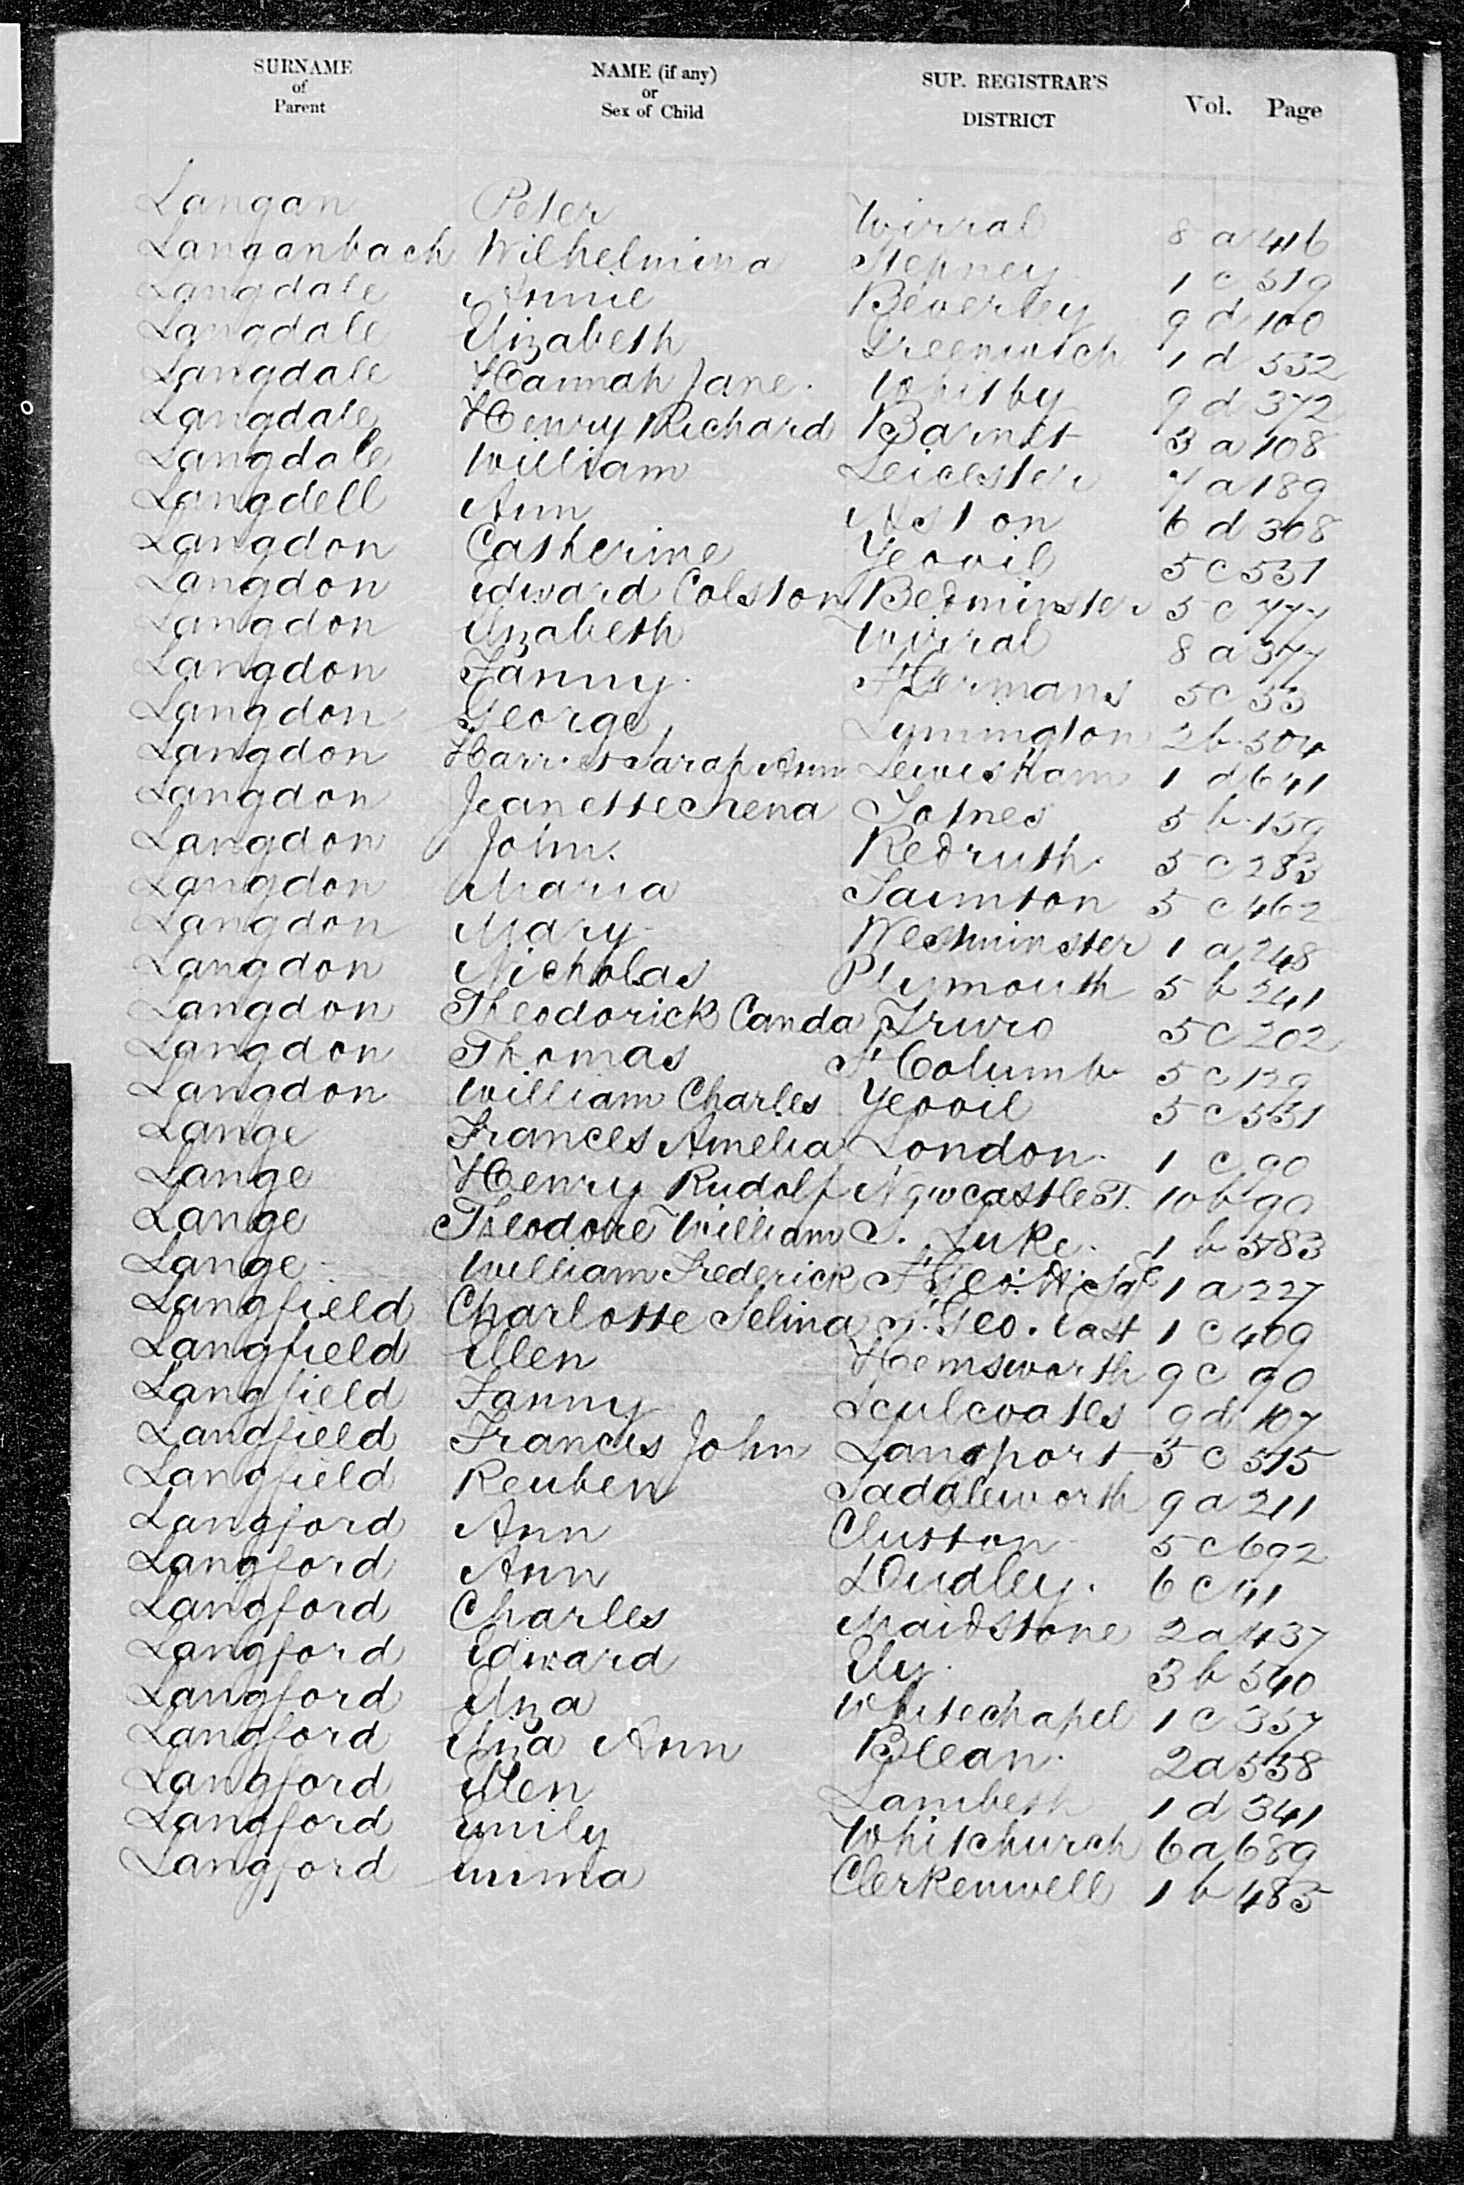 SURNAME of Parent NAME (if any) or Sex of Child SUP. REGISTRAR'S DISTRICT Vol. Page
Langan Peter Wirral 8 a 416
Langanbach Wilhelmina Stepney 1 c 519
Langdale Annie Beverley 9 d 100
Langdale Elizabeth Greenwich 1 d 532
Langdale Hannah Jane. Whitby 9 d 372
Langdale Henry Richard Barnet 3 a 108
Langdale William Leicester 7 a 189
Langdell Ann Aston 6 d 308
Langdon Catherine Yeovil 5 c 531
Langdon Edward Colston Bedminster 5 c 777
Langdon Elizabeth Wirral 8 a 377
Langdon Fanny St Germans 5 c 53
Langdon George Lymington 2 b 504
Langdon Harriet Sarah Ann Lewisham 1 d 641
Langdon Totnes 5 b 159
Langdon John. Redruth 5 c 283
Langdon Maria Taunton 5 c 462
Langdon Mary Westminster 1 a 248
Langdon Nicholas Plymouth 5 b 241
Langdon Theodorick Canda Truro 5 c 202
Langdon Thomas St Columb 5 c 129
Langdon William Charles Yeovil 5 c 531
Lange Frances Amelia London 1 c 90
Lange Henry Rudolf Newcastle T. 10 b 90
Lange Theodore William S. Luke 1 b 583
Lange William Frederick St Geo. H. Sqe 1 a 227
Langfield Charlotte Selina St. Geo. East 1 c 409
Langfield Ellen Hemsworth 9 c 90
Langfield Fanny Sculcoates 9 d 107
Langfield Francis John Langport 5 c 515
Langfield Reuben Saddleworth 9 a 211
Langford Ann Clutton 5 c 692
Langford Ann Dudley. 6 c 41
Langford Charles Maidstone 2 a 437
Langford Edward Ely 3 b 540
Langford Eliza Whitechapel 1 c 357
Langford Eliza Ann Blean 2 a 558
Langford Ellen Lambeth 1 d 341
Langford Emily Whitchurch 6 a 689
Langford Emma Clerkenwell 1 b 483